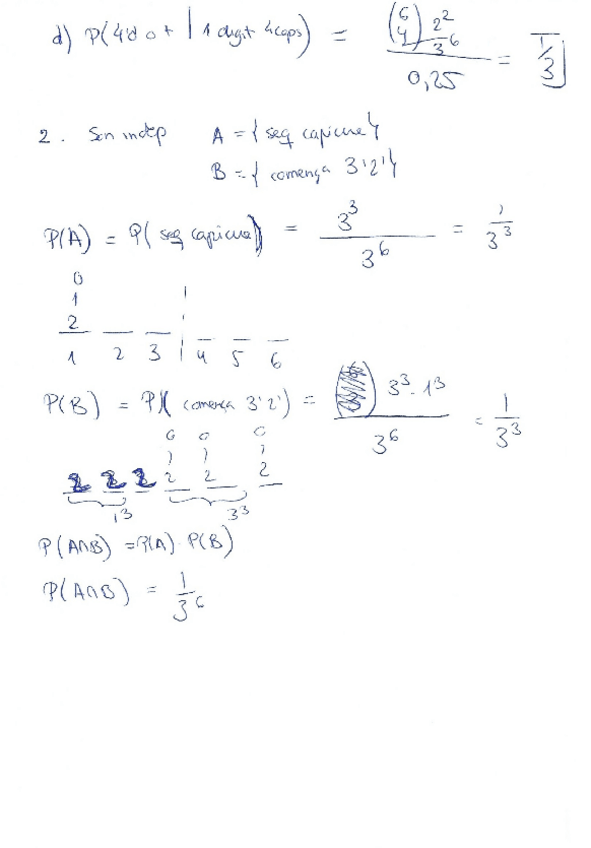 d) P(4'd 0 + | 1 digit 4 cops) = \frac{\binom{6}{4} \frac{2^2}{3^6}}{0,25} = \frac{1}{3}
2. Son indep A = { seq capicua }
B = { comença 3 '2' }
P(A) = P( seq capicua ) = \frac{3^3}{3^6} = \frac{1}{3^3}
0
1
2
1 2 3 4 5 6
P(B) = P( comença 3 '2' ) = \frac{3^3 · 1^3}{3^6} = \frac{1}{3^3}
0 0 0
1 1 1
2 2 2 2 2 2
1^3 3^3
P(A∩B) = P(A) · P(B)
P(A∩B) = \frac{1}{3^6}